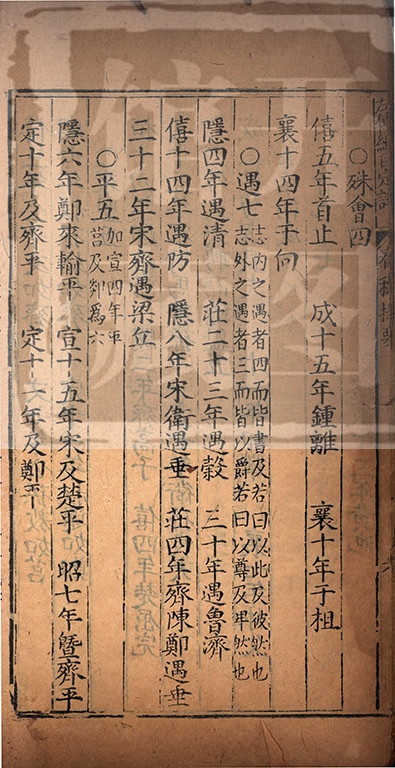 ○殊會四
僖五年首止　成十五年鍾離　襄十年于柤
襄十四年于向
○遇七志內之遇者四而皆書及若曰以此及彼然也志外之遇者三而皆以爵若曰以尊及卑然也
隱四年遇清　莊二十三年遇穀　三十年遇魯濟
僖十四年遇防　隱八年宋衛遇垂　莊四年齊陳鄭遇垂
三十二年宋齊遇梁丘
○平五加宣四年平莒及郯爲六
隱六年鄭來輸平　宣十五年宋及楚平　昭七年暨齊平
定十年及齊平　定十一年及鄭平